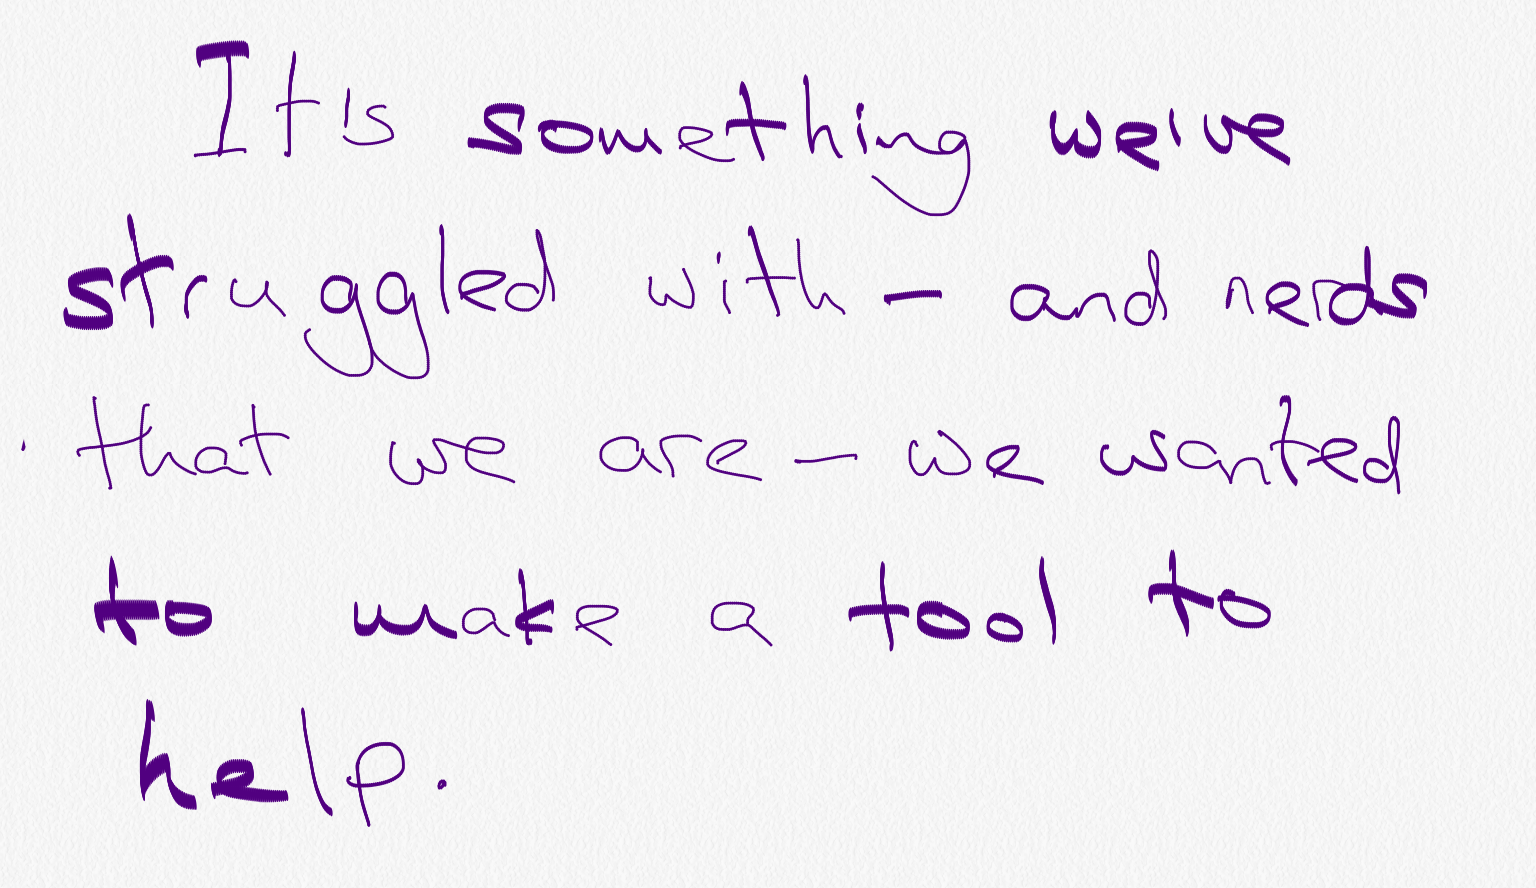 It's something we've
struggled with - and nerds
that we are - we wanted
to make a tool to
help.